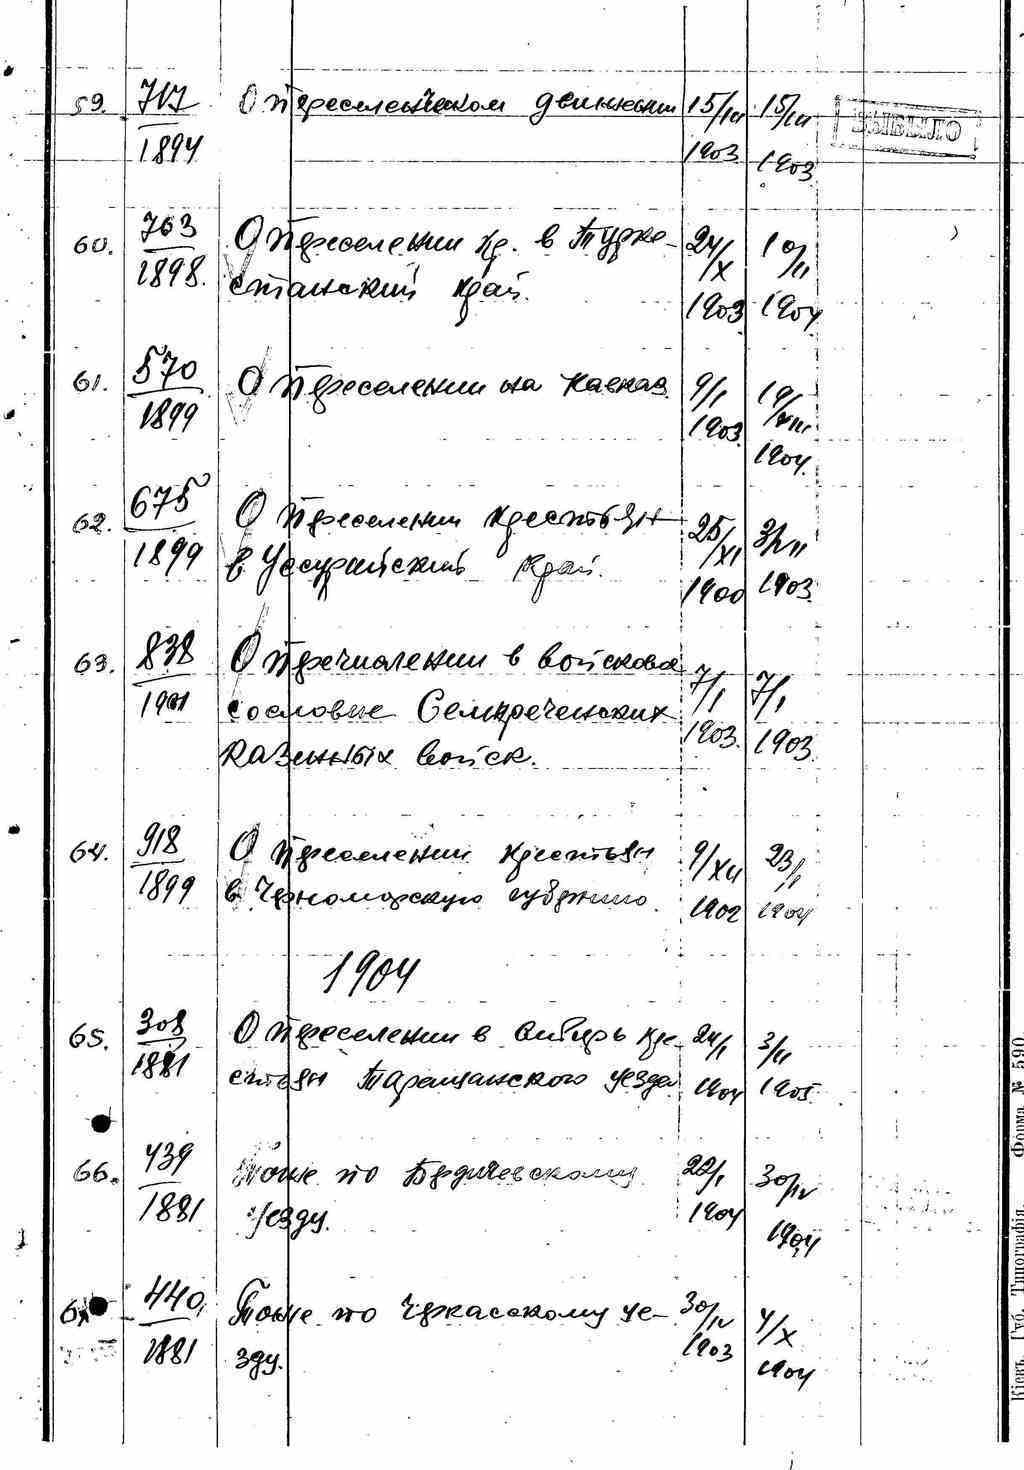 59. 717/1894 О переселенческом движении 15/III 1903 15/III 1903 ВЫБЫЛО
60. 763/1898. О переселении кр. в Турке-
станский край. 24/X 1903 10/II 1904
61. 570/1899 О переселении на Кавказ 9/I 1903 19/VIII 1904.
62. 675/1899 О переселении крестьян
в Уссурийский край. 25/XI 1900 1903.
63. 838/1901 О перечислении в войсковое
сословие Семиреченских
казачьих войск. 7/I 1903. 7/I 1903.
64. 918/1899 О переселении крестьян
в Черноморскую губернию. 9/XII 1902 23/I 1904
1904
65. 308/1881 О переселении в Сибирь кре-
стьян Таращанского уезда 24/I 1904 3/II 1905
66. 439/1881 Тоже по Бердичевскому
уезду. 22/I 1904 30/IV 1904
440/1881 Тоже по Черкасскому уе-
зду. 30/IV 1903 4/X 1904
Кіевъ. Губ. Типографія. Форма № 590